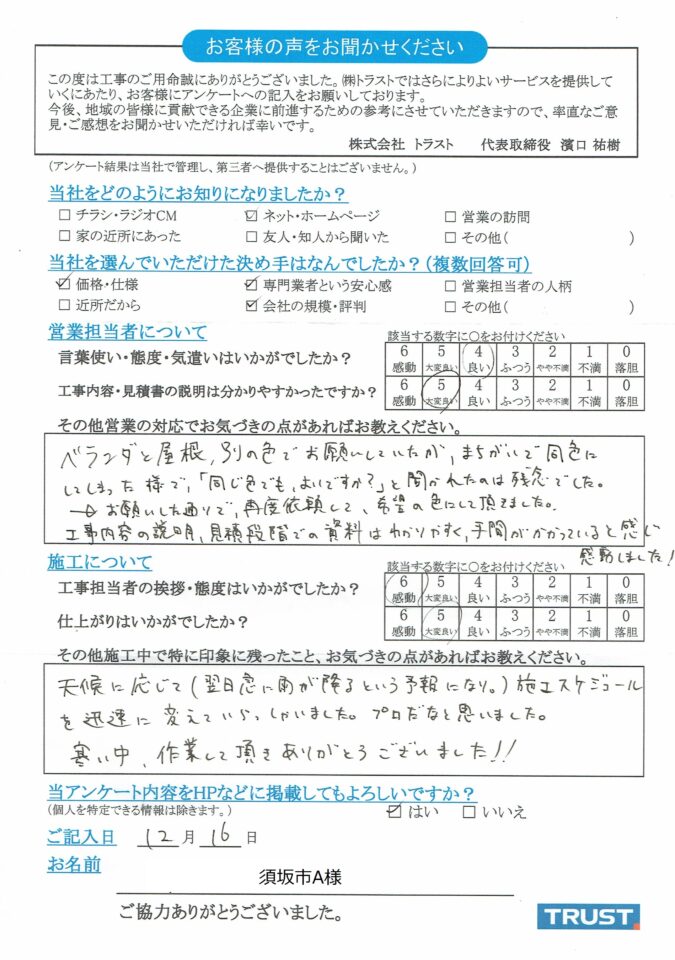 お客様の声をお聞かせください
この度は工事のご用命誠にありがとうございました。㈱トラストではさらによりよいサービスを提供して
いくにあたり、お客様にアンケートへの記入をお願いしております。
今後、地域の皆様に貢献できる企業に前進するための参考にさせていただきますので、率直なご意
見・ご感想をお聞かせいただければ幸いです。
株式会社 トラスト 代表取締役 濱口 祐樹
(アンケート結果は当社で管理し、第三者へ提供することはございません。)
当社をどのようにお知りになりましたか？
☐ チラシ・ラジオCM ☑ ネット・ホームページ ☐ 営業の訪問
☐ 家の近所にあった ☐ 友人・知人から聞いた ☐ その他( )
当社を選んでいただけた決め手はなんでしたか？(複数回答可)
☑ 価格・仕様 ☑ 専門業者という安心感 ☐ 営業担当者の人柄
☐ 近所だから ☑ 会社の規模・評判 ☐ その他( )
営業担当者について 該当する数字に○をお付けください
言葉使い・態度・気遣いはいかがでしたか？ 6 5 4 3 2 1 0
感動 大変良い 良い ふつう やや不満 不満 落胆
工事内容・見積書の説明は分かりやすかったですか？ 6 5 4 3 2 1 0
感動 大変良い 良い ふつう やや不満 不満 落胆
その他営業の対応でお気づきの点があればお教えください。
ベランダと屋根、別の色でお願いしていたが、まちがいで同色に
してしまった様で、「同じ色でも、よいですか？」と聞かれたのは残念でした。
→お願いした通りで、再度依頼して、希望の色にして頂きました。
工事内容の説明、見積段階での資料はわかりやすく、手間がかかっていると感じ
感動しました！
施工について 該当する数字に○をお付けください
工事担当者の挨拶・態度はいかがでしたか？ 6 5 4 3 2 1 0
感動 大変良い 良い ふつう やや不満 不満 落胆
仕上がりはいかがでしたか？ 6 5 4 3 2 1 0
感動 大変良い 良い ふつう やや不満 不満 落胆
その他施工中で特に印象に残ったこと、お気づきの点があればお教えください。
天候に応じて(翌日急に雨が降るという予報になり。)施工スケジュール
を迅速に変えていらっしゃいました。プロだなと思いました。
寒い中、作業して頂きありがとうございました!!
当アンケート内容をHPなどに掲載してもよろしいですか？
(個人を特定できる情報は除きます。) ☑ はい ☐ いいえ
ご記入日 12 月 16 日
お名前
須坂市A様
ご協力ありがとうございました。
TRUST.